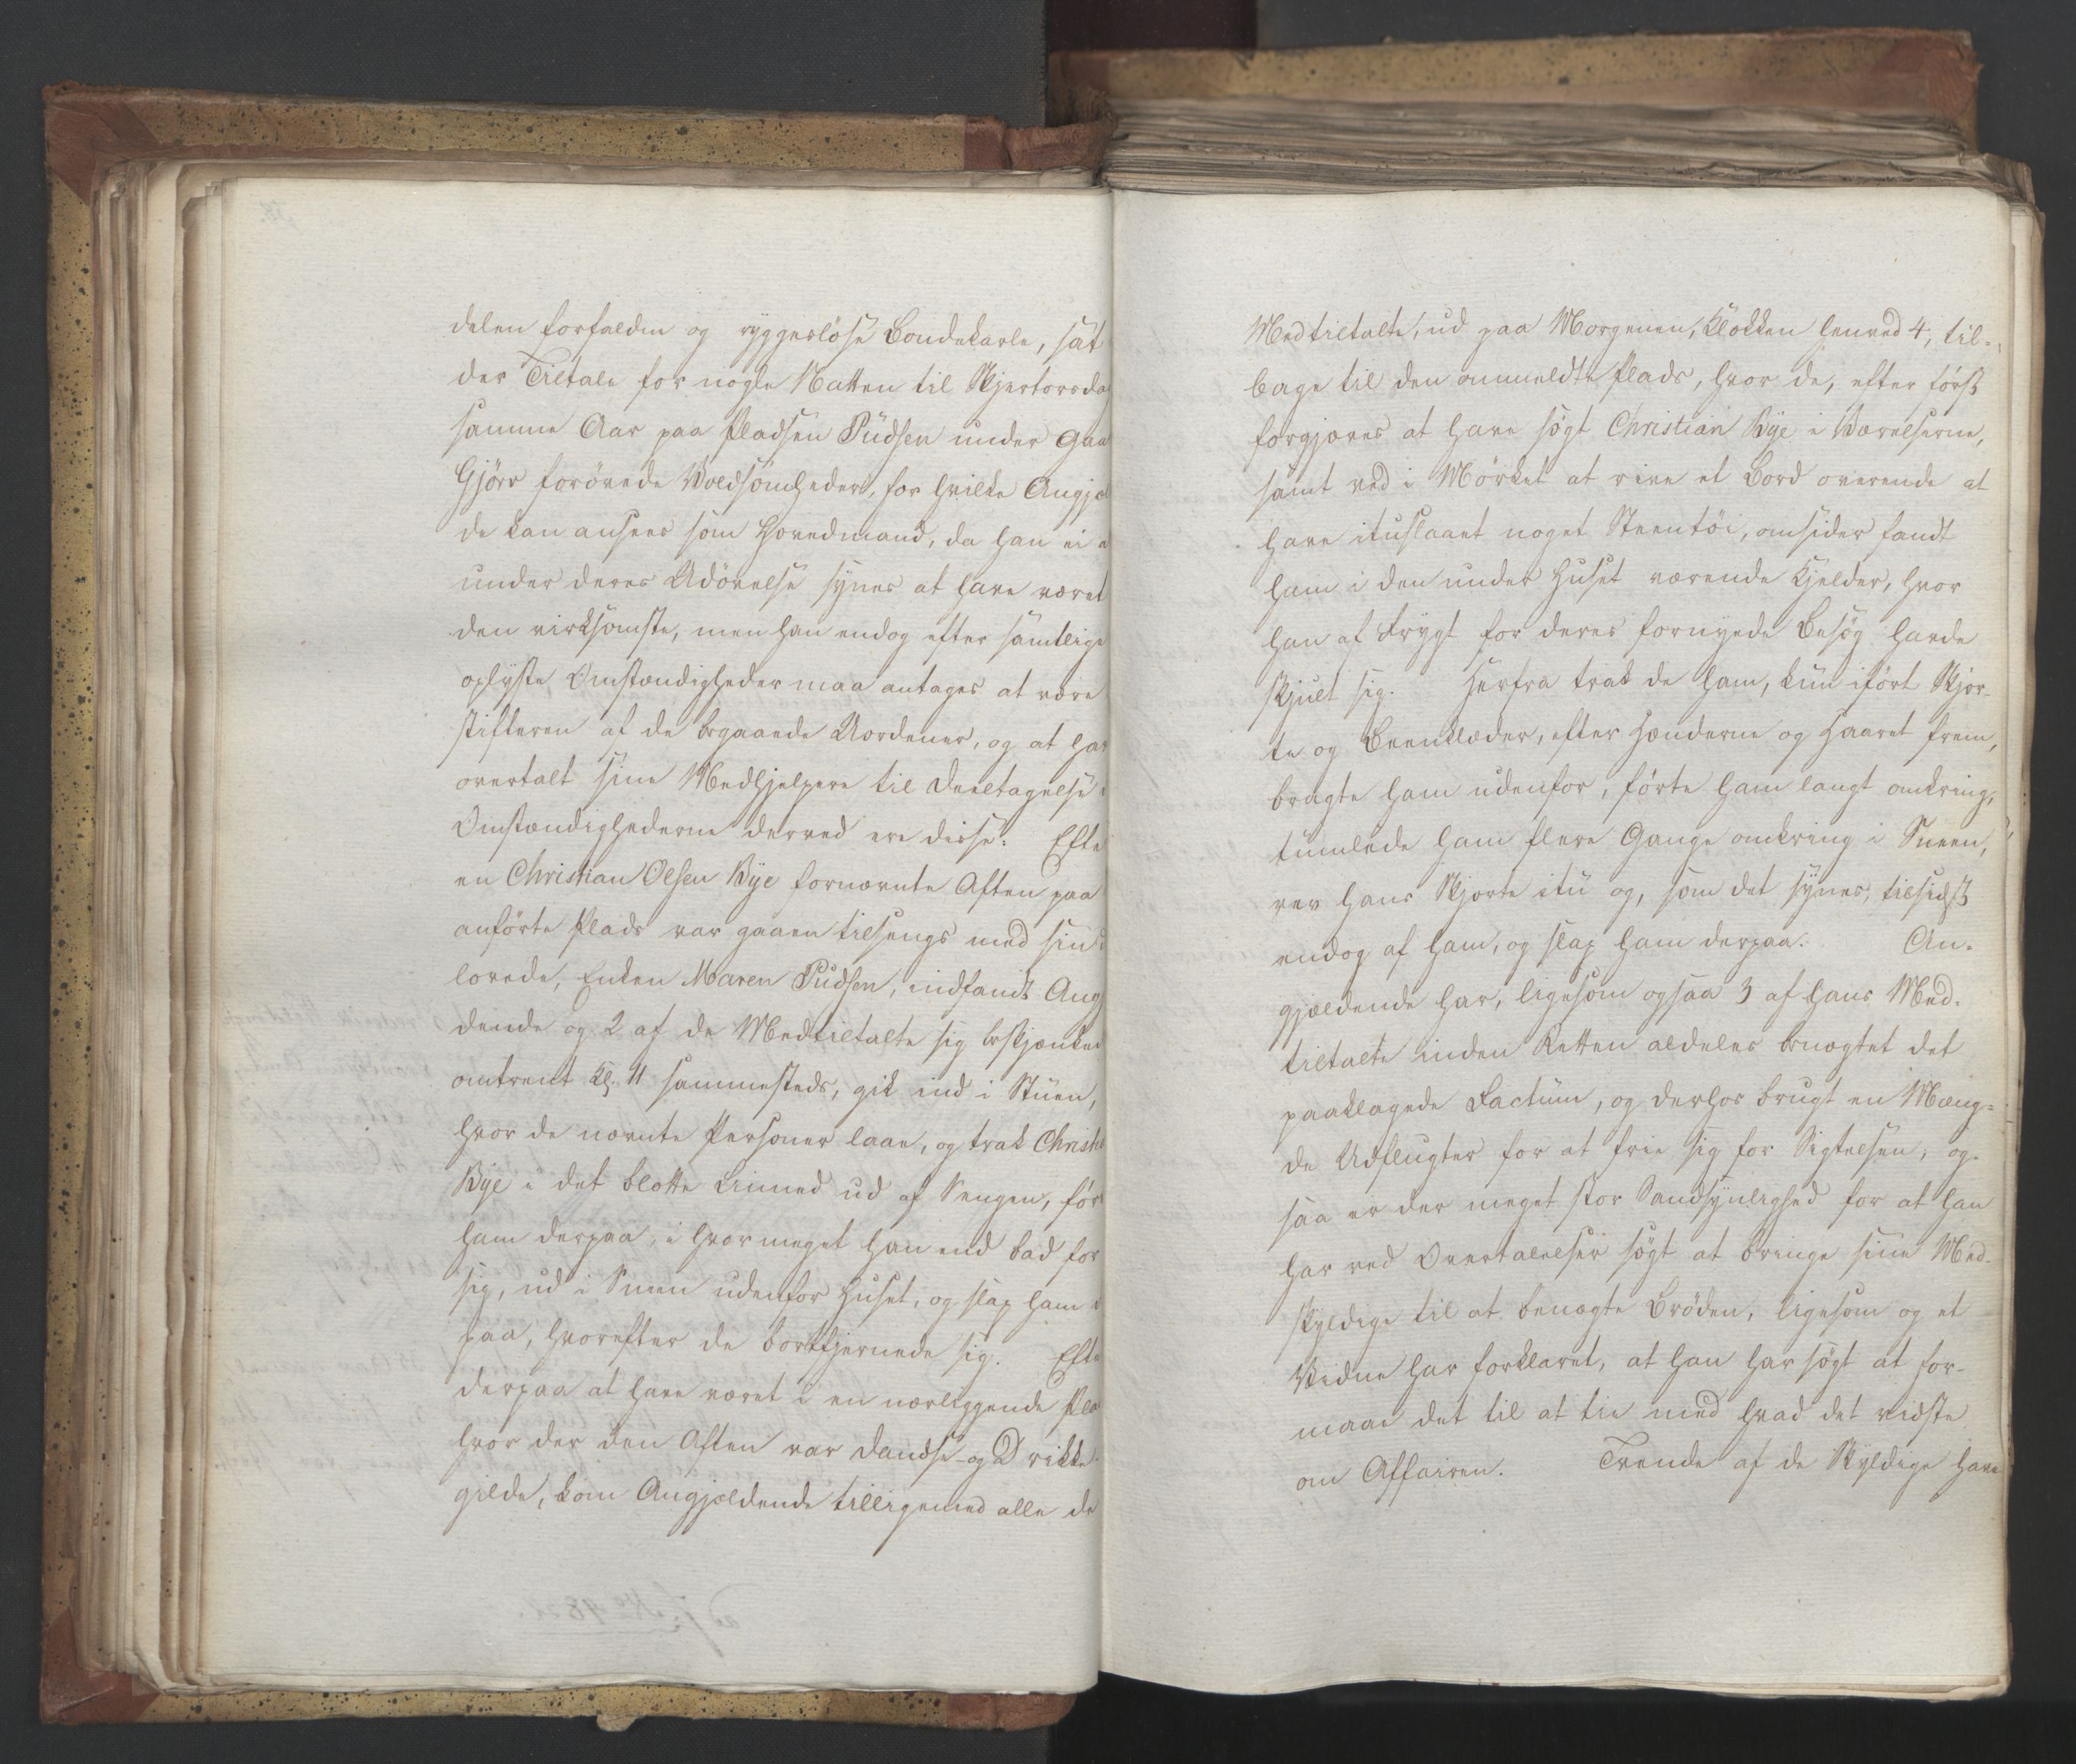 delen forfaldne og ryggeslöse Bondekarle, sat
des Tiltale for nogle Natten til Skjertorsdag
samme Aar paa Pladsen Püdsen under Gaa
Gjörv forövede Voldsomheder, for hvilke Angjel
de kan ansees som Hovedmand, da han ei a
under deres Udövelse synes at have været
den virksomste, men han endog efter samtlige
oplyste Omstændigheder maa antages at være
Stifteren af de begaaede Uordener, og at har
overtalt sine Medhjelpere til Deeltagelse i
Omstændighederne derved ere disse: Efte
en Christian Olsen Bye fornævnte Aften paa
anförte Plads var gaaen tilsengs med sin
lovede, Enken Maren Püdsen, indfandt Ang
dende og 2 af de Medtiltalte sig beskjænked
omtrent Kl. 11 sammesteds, gik ind i Stüen,
hvor de nævnte Personer laae, og trak Christi
Bye i det blotte Linned ud af Sengen, för
ham derpaa, i hvor meget han end bad for
sig, ud i Sneen udenfor Huset, og slap ham d
paa, hvorefter de bortfjernede sig. Efte
derpaa at have været i en nærliggende Pla
hvor der den Aften var Dandse- og Drikke-
gilde, kom Angjeldende tilligemed alle de
Medtiltalte, ud paa Morgenen, Klokken henved 4, til-
bage til den ommeldte Plads, hvor de, efter först
forgjæves at have sögt Christian Bye i Værelserne,
samt ved i Mörket at rive et Bord overende at
have ituslaaet noget Steentöi, omsider fandt
ham i den under Huset værende Kjelder, hvor
han af Frygt for deres fornyede Besög havde
skjult sig. Herfra trak de ham, kun iført Skjor-
te og Beenklæder, efter Hænderne og Haaret frem,
bragte ham udenfor, förte ham langt omkring,
tumlede ham flere Gange omkring i Sneen,
rev hans Skjorte itu og, som det synes, tilsidst
endog af ham, og slap ham derpaa. An-
gjældende har, ligesom ogsaa 3 af hans Med-
tiltalte inden Retten aldeles benægtet det
paaklagede Factum, og derhos brugt en Mæng-
de Udflugter for at frie sig for Sigtelsen; og-
saa er der meget stor Sandsynlighed for at han
har ved Overtalelser sögt at bringe sine Med-
skyldige til at benægte Bröden, ligesom og et
Vidne har forklaret, at han har sögt at for-
maae det til at tie med hvad det vidste
om Affairen. Trende af de Skyldige have